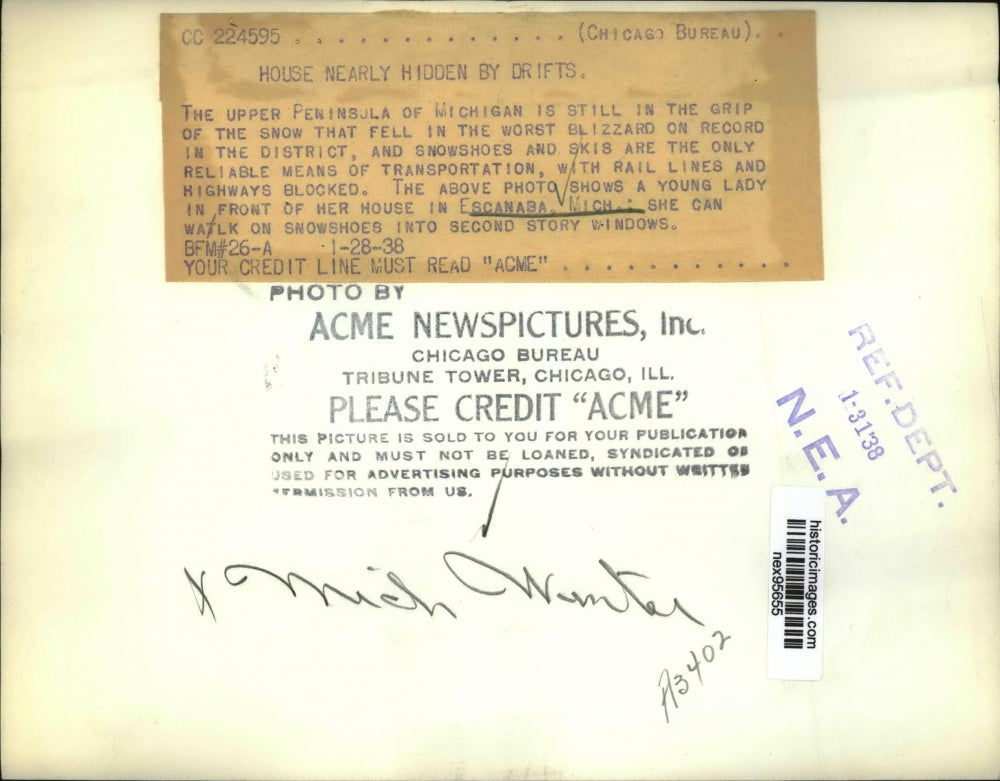 CC 224595 . . . . . . . . . . . . . . (CHICAGO BUREAU). .
HOUSE NEARLY HIDDEN BY DRIFTS.
THE UPPER PENINSULA OF MICHIGAN IS STILL IN THE GRIP
OF THE SNOW THAT FELL IN THE WORST BLIZZARD ON RECORD
IN THE DISTRICT, AND SNOWSHOES AND SKIS ARE THE ONLY
RELIABLE MEANS OF TRANSPORTATION, WITH RAIL LINES AND
HIGHWAYS BLOCKED. THE ABOVE PHOTO SHOWS A YOUNG LADY
IN FRONT OF HER HOUSE IN ESCANABA, MICH.; SHE CAN
WALK ON SNOWSHOES INTO SECOND STORY WINDOWS.
BFM#26-A 1-28-38
YOUR CREDIT LINE MUST READ "ACME" . . . . . . . . . . . .
PHOTO BY
ACME NEWSPICTURES, Inc.
CHICAGO BUREAU
TRIBUNE TOWER, CHICAGO, ILL.
PLEASE CREDIT "ACME"
THIS PICTURE IS SOLD TO YOU FOR YOUR PUBLICATION
ONLY AND MUST NOT BE LOANED, SYNDICATED OR
USED FOR ADVERTISING PURPOSES WITHOUT WRITTEN
PERMISSION FROM US.
REF. DEPT.
1-31'38
N. E. A.
historicimages.com
nex95655
X Mich Winter
A3402